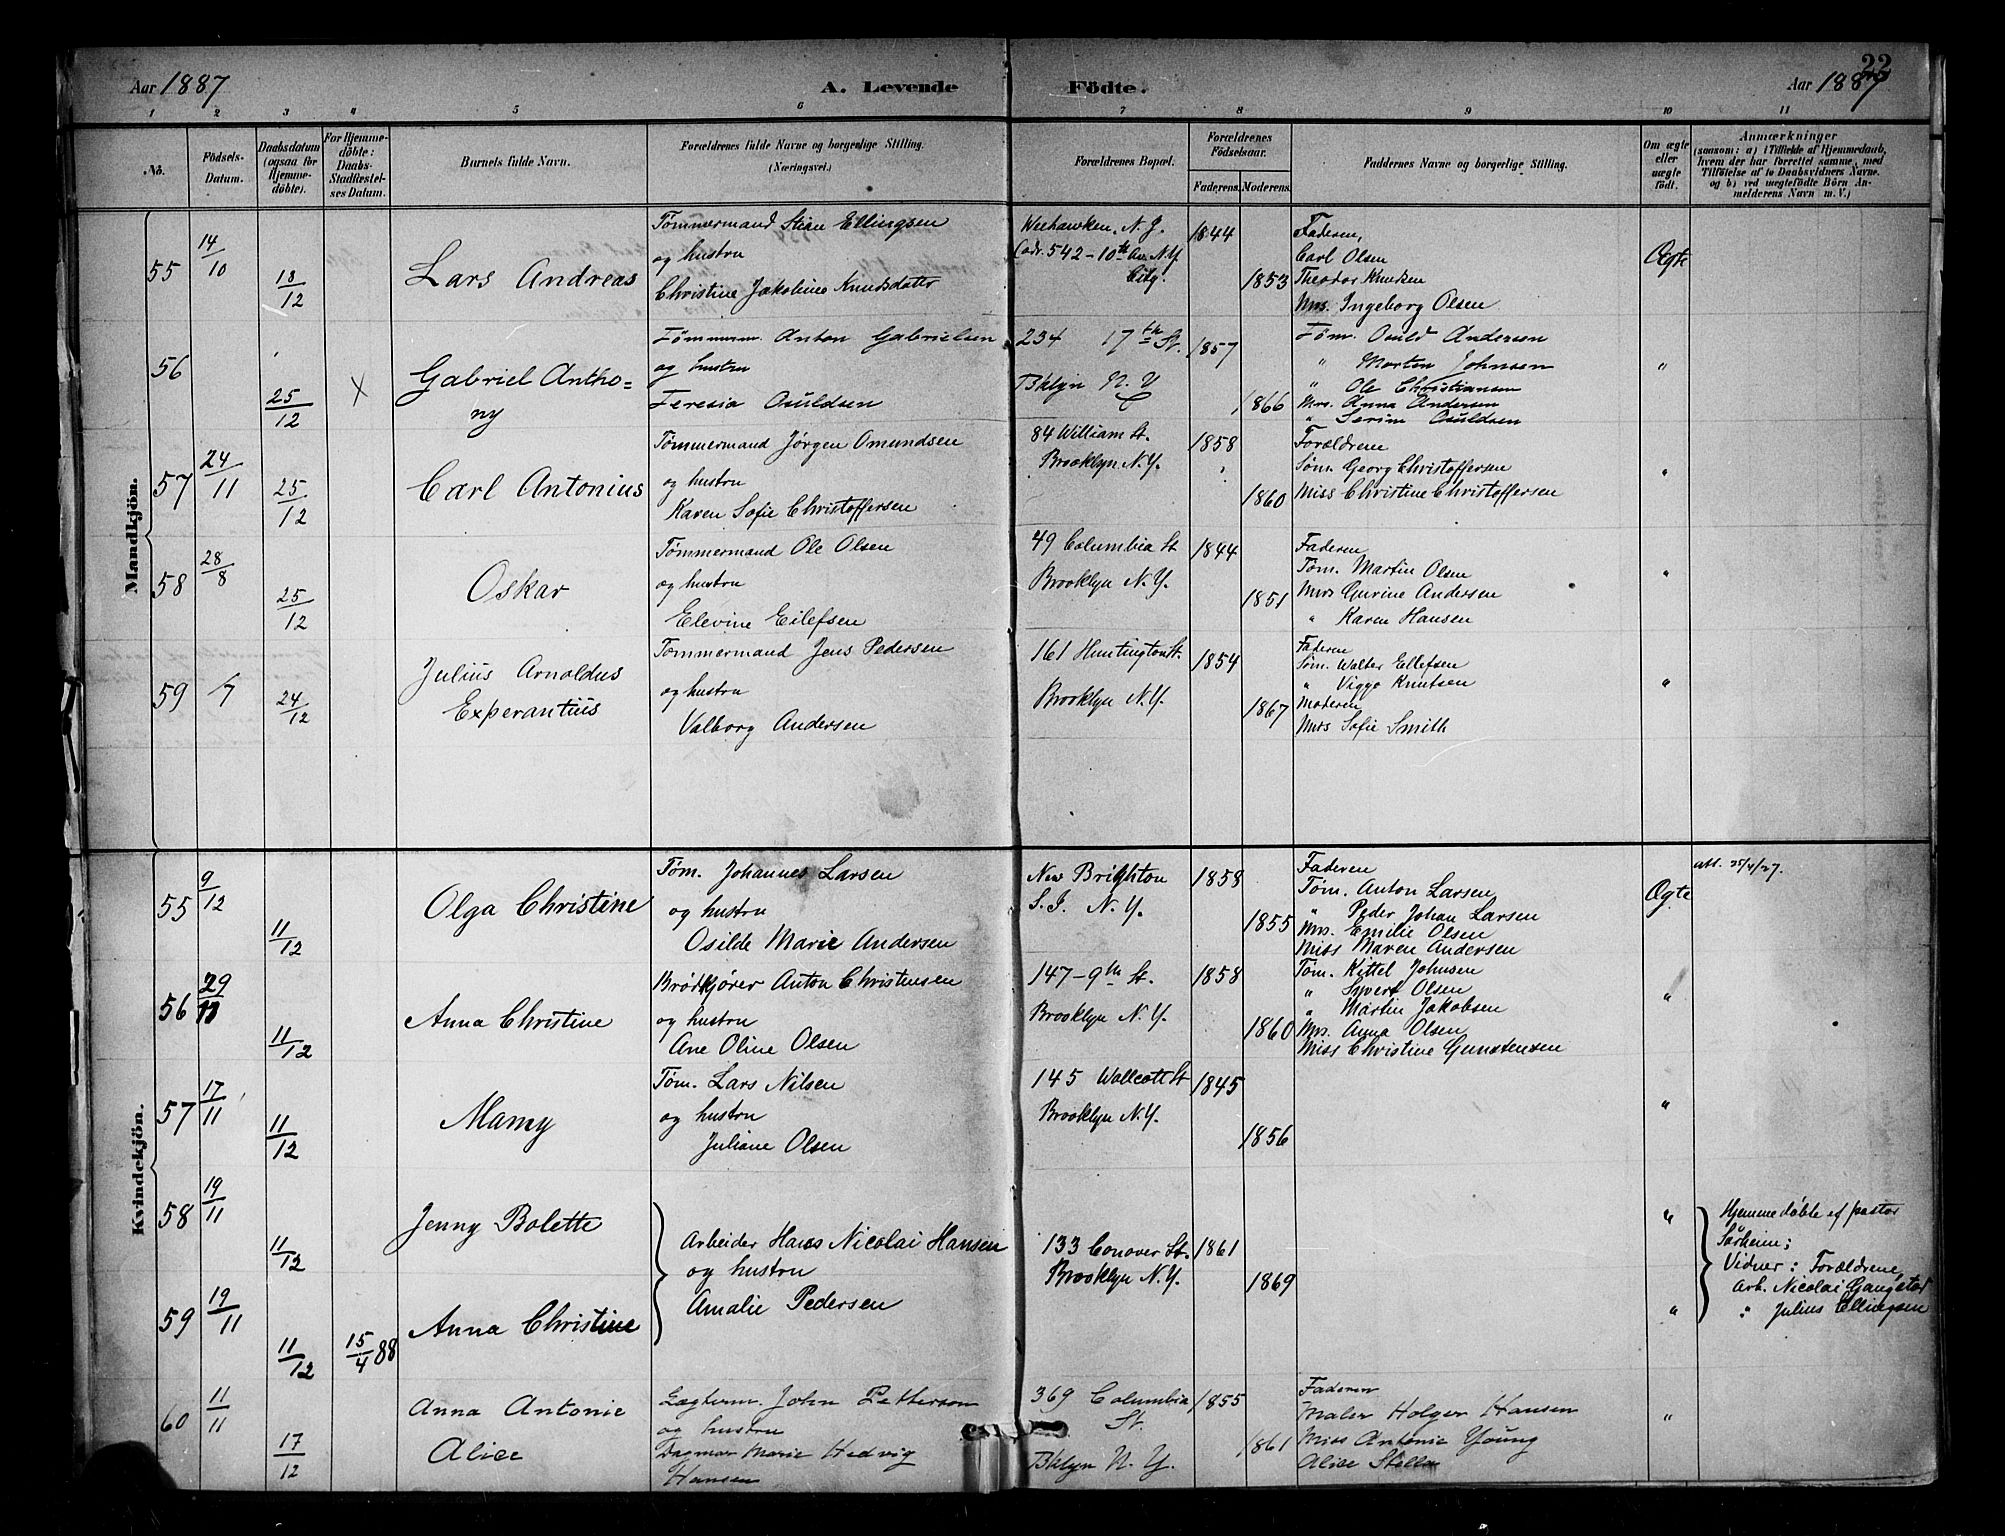 22
Aar 1887
A. Levende Födte.
Aar 1887
1 2 3 4 5 6 7 8 9 10 11
No.
Födsels-
Datum.
Daabsdatum
(ogsaa for
Hjemme-
döbte).
For Hjemme-
döbte:
Daabs-
Stadfæstel-
ses Datum.
Barnets fulde Navn.
Forældrenes fulde Navne og borgerlige Stilling.
(Næringsvei.)
Forældrenes Bopæl.
Forældrenes
Födselsaar.
Faderens. Moderens.
Faddernes Navne og borgerlige Stilling.
Om ægte
eller
uægte
født.
Anmærkninger
(saasom: a) i Tilfælde af Hjemmedaab,
hvem der har forrettet samme, med
Tilföielse af to Daabsvidners Navne.
og b) ved uægtefödte Börn An-
melderens Navn m. V.)
Mandkjön.
55
14/10
18/12
Lars Andreas
Tømmermand Stian Ellingsen
og hustru
Christine Jakobine Knudsdatter
Weehawken, N. J.
(adr. 542 - 10th Av. N.Y.
City.
1844
1853
Faderen,
Carl Olsen
Theodor Knudsen
Mrs. Ingeborg Olsen
Ægte
56
25/12
X
Gabriel Antho=
ny
Tømmerm. Anton Gabrielsen
og hustru
Teresia Osuldsen
234 17th St.
Bklyn N. Y
1857
1866
Tøm. Osuld Andersen
" Morten Johnsen
" Ole Christiansen
Mrs. Anna Andersen
" Serine Osuldsen
"
57
24/11
25/12
Carl Antonius
Tømmermand Jørgen Omundsen
og hustru
Karen Sofie Christoffersen
84 William St.
Brooklyn. N.Y.
1858
1860
Forældrene
Søm. Georg Christoffersen
Miss Christine Christoffersen
"
58
28/8
25/12
Oskar
Tømmermand Ole Olsen
og hustru
Elevine Eilefsen
49 Columbia St
Brooklyn N.Y.
1844
1851
Faderen
Tøm. Martin Olsen
Mrs Gurine Andersen
" Karen Hansen
"
59
/7
24/12
Julius Arnoldus
Experantius
Tømmermand Jens Pedersen
og hustru
Valborg Andersen
161 Huntington St.
Brooklyn N.Y.
1854
1867
Faderen
Søm. Walter Ellefsen
" Viggo Knutsen
Moderen
Mrs Sofie Smith
"
Kvindekjön.
55
9/12
11/12
Olga Christine
Tøm. Johannes Larsen
og hustru
Osilde Marie Andersen
New Brighton
S. I. N. Y.
1858
1855
Faderen
Tøm. Anton Larsen
" Peder Johan Larsen
Mrs. Emilie Olsen
Miss Maren Andersen
Ægte
att. 25/4/27.
56
29/11
11/12
Anna Christine
Brødkjører Anton Christensen
og hustru
Ane Oline Olsen
147 - 9th St.
Brooklyn N.Y.
1858
1860
Tøm. Kittel Johnsen
" Syvert Olsen
" Martin Jakobsen
Mrs. Anna Olsen
Miss Christine Gunstensen
"
57
17/11
11/12
Mamy
Tøm. Lars Nilsen
og hustru
Juliane Olsen
145 Wollcott St
Brooklyn N.Y.
1845
1856
"
58
19/11
11/12
Jenny Bolette
Arbeider Hans Nicolai Hansen
og hustru
Amalie Pedersen
133 Conover St.
Brooklyn N.Y.
1861
1869
"
Hjemmedöbte af pastor
Sårheim;
Vidner: Forældrene,
Arb. Nicolai Gangstad
" Julius Ellingsen
59
19/11
11/12
15/4 88
Anna Christine
"
60
11/11
17/12
Anna Antonie
Alice
Lægterm. John Petterson
og hustru
Dagmar Marie Hedvig
Hansen
369 Columbia
St.
Bklyn N. Y.
1855
1861
Faderen
Maler Holger Hansen
Miss Antonie Young
Alice Stella
"